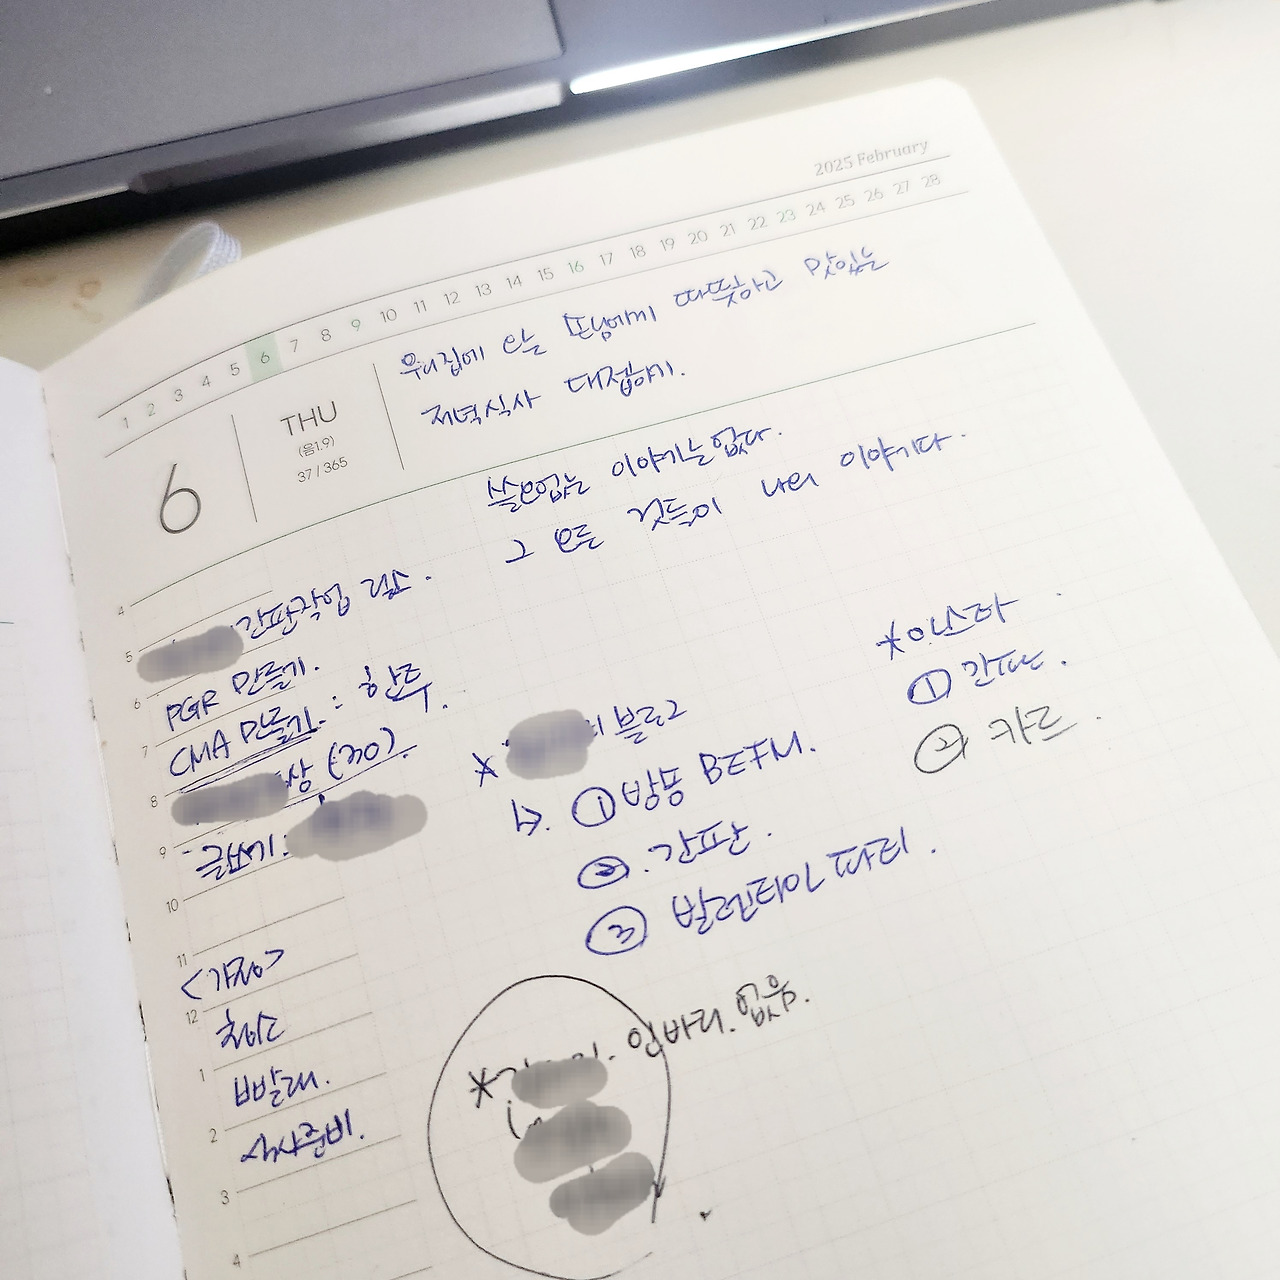 2025 February
1 2 3 4 5 6 7 8 9 10 11 12 13 14 15 16 17 18 19 20 21 22 23 24 25 26 27 28
6
THU
(음1.9)
37 / 365
우리집에 오는 손님에게 따뜻하고 맛있는
저녁식사 대접하기.
쓸모없는 이야기는 없다.
그 모든 것들이 나의 이야기다.
4
5
간판작업
6
PGR 만들기.
7
CMA 만들기 : 하루.
8
상
9
글쓰기 :
10
11
<가정>
12
청소
1
빨래.
2
식사준비.
3
4
* 블로그
① 방풍
② 간판.
③
* 인스타
① 간판.
② 카드.
* 없음.